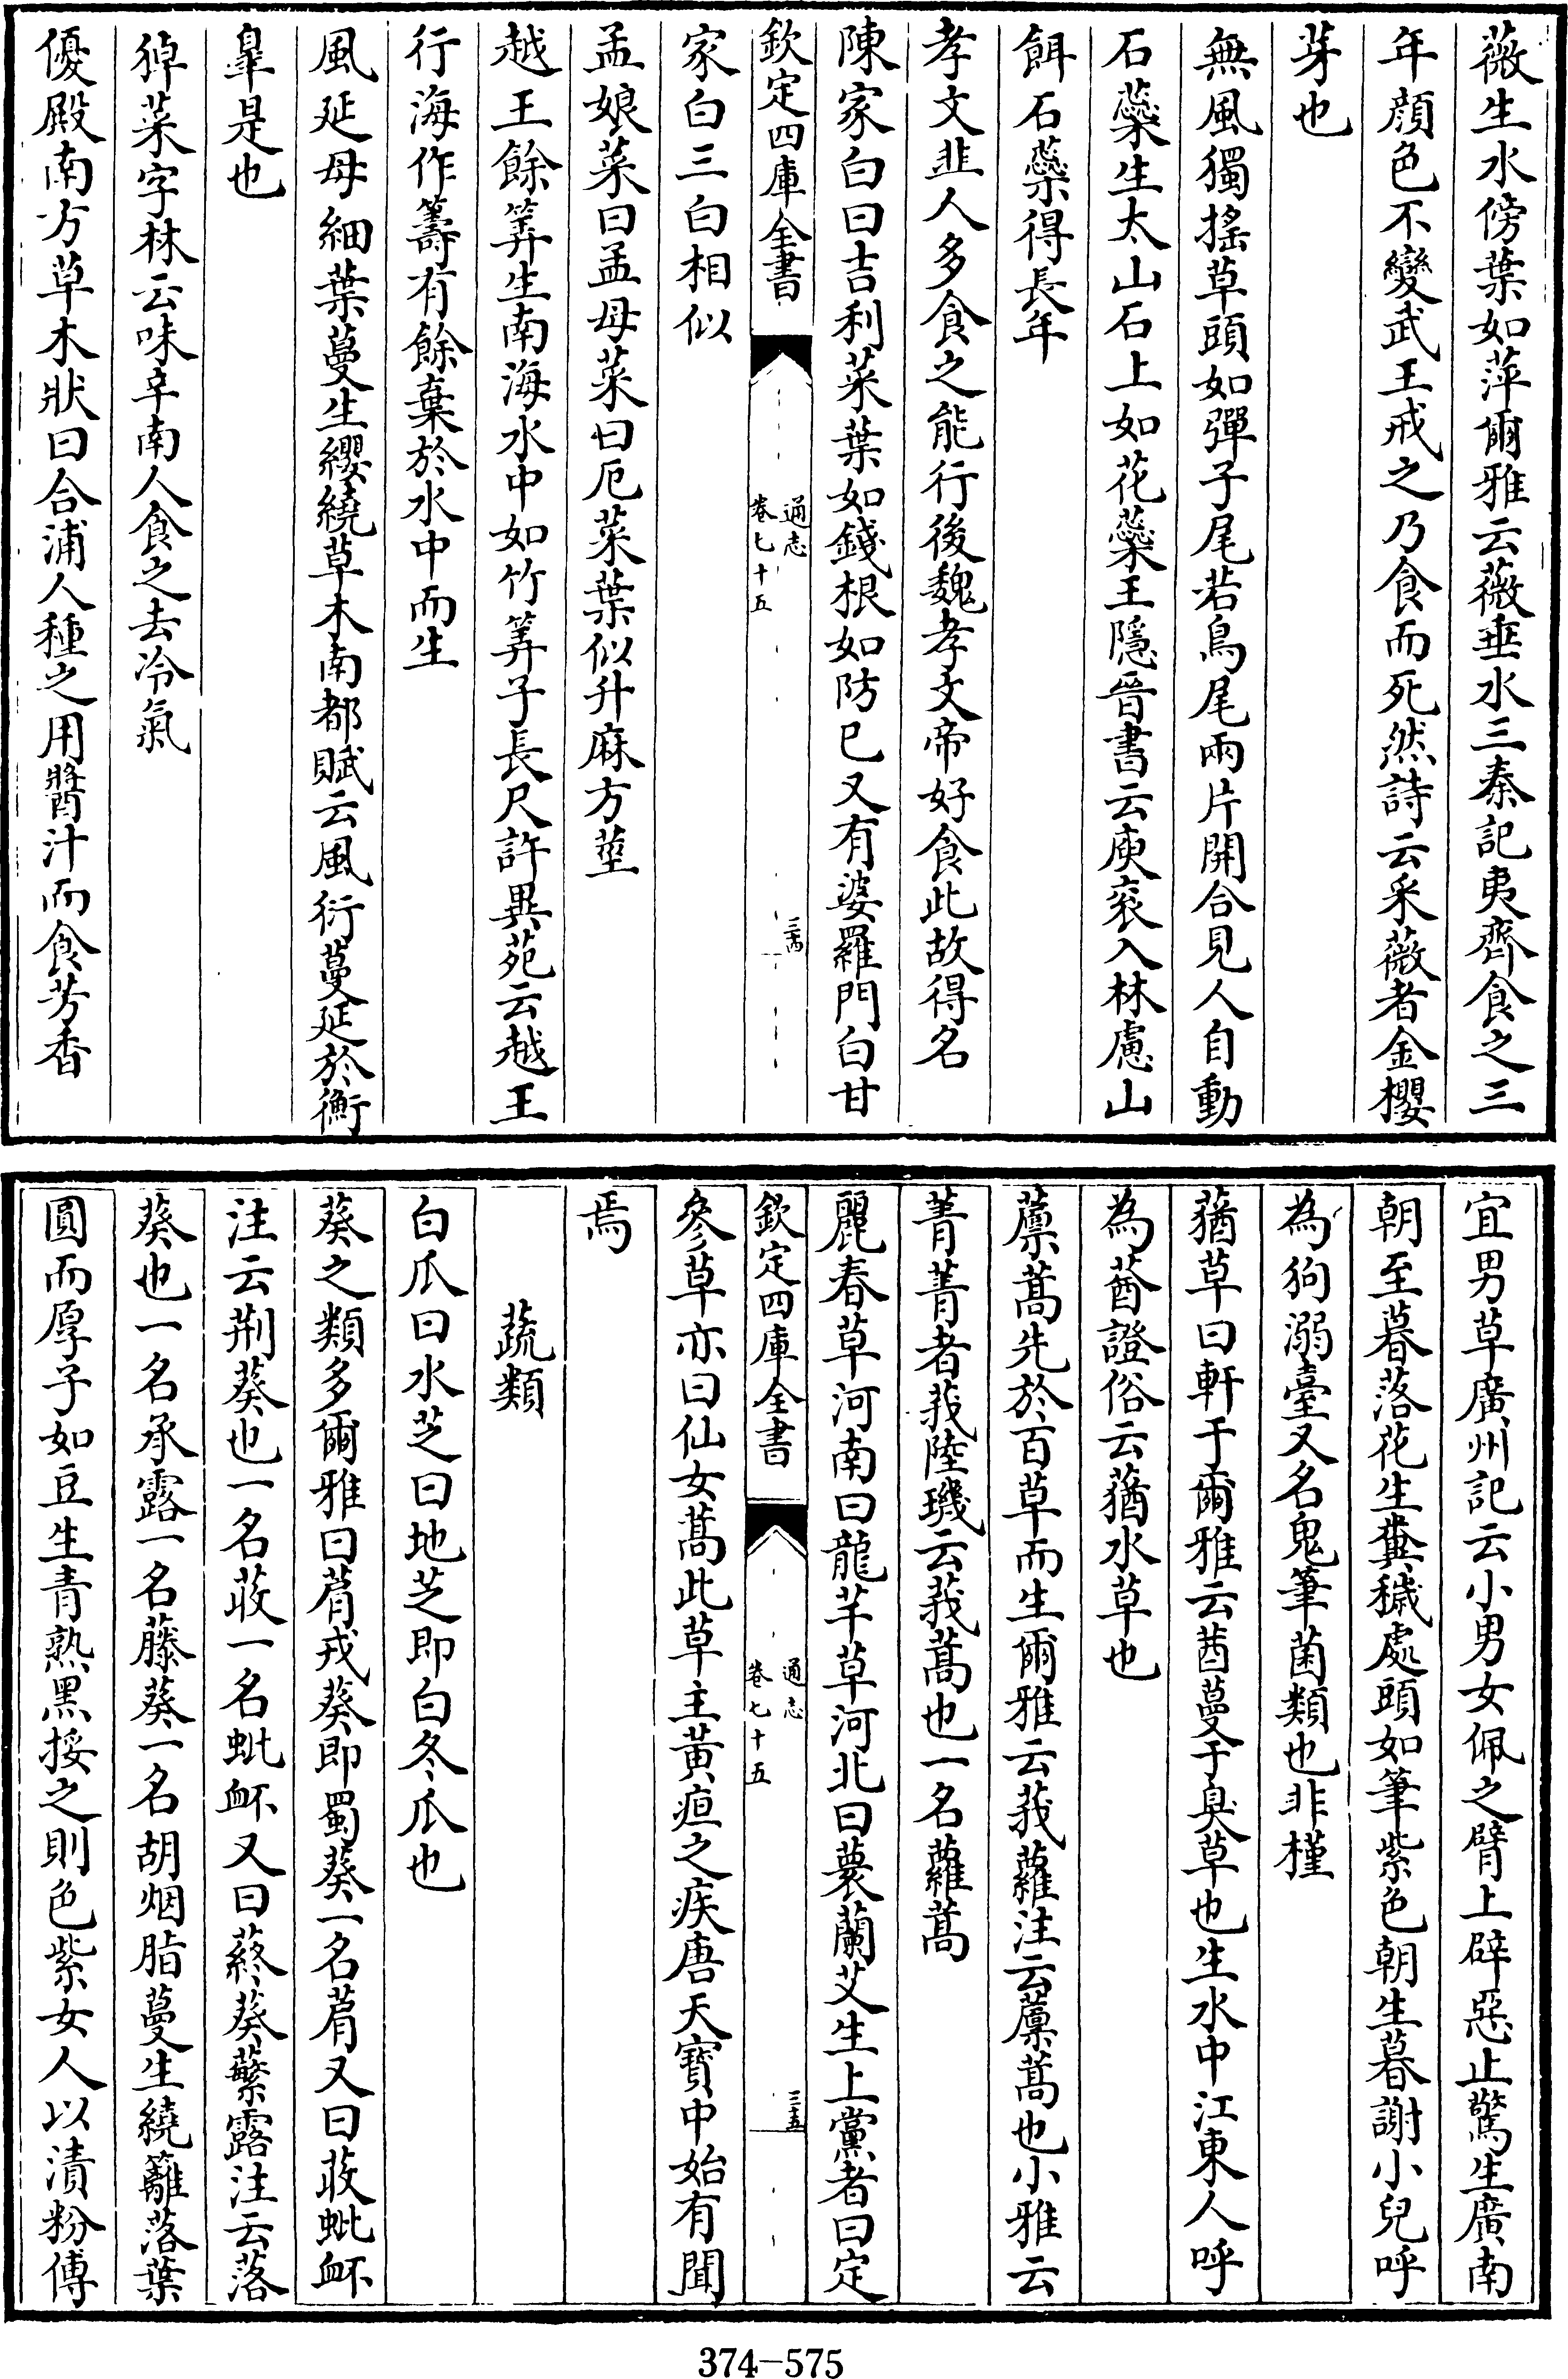 薇生水傍葉如萍爾雅云薇垂水三秦記夷齊食之三
年顔色不變武王戒之乃食而死然詩云采薇者金櫻
芽也
無風獨搖草頭如彈子尾若鳥尾兩片開合見人自動
石蘂生太山石上如花蘂王隱晉書云庾衮入林慮山
餌石蘂得長年
孝文韭人多食之能行後魏孝文帝好食此故得名
陳家白曰吉利菜葉如錢根如防巳又有婆羅門白甘
欽定四庫全書
通志
卷七十五
三十四
家白三白相似
孟娘菜曰孟母菜曰厄菜葉似升麻方莖
越王餘筭生南海水中如竹筭子長尺許異苑云越王
行海作籌有餘棄於水中而生
風延母細葉蔓生纓繞草木南都賦云風衍蔓延於衡
臯是也
綽菜字林云味辛南人食之去冷氣
優殿南方草木狀曰合浦人種之用醬汁而食芳香
宜男草廣州記云小男女佩之臂上辟惡止驚生廣南
朝至暮落花生糞穢處頭如筆紫色朝生暮謝小兒呼
為狗溺臺又名鬼筆菌類也非槿
蕕草曰軒于爾雅云茜蔓于臭草也生水中江東人呼
為莤證俗云蕕水草也
藨蒿先於百草而生爾雅云莪蘿注云藨蒿也小雅云
菁菁者莪陸璣云莪蒿也一名蘿蒿
麗春草河南曰龍芊草河北曰蘘蘭艾生上黨者曰定
欽定四庫全書
通志
卷七十五
三十五
參草亦曰仙女蒿此草主黃疸之疾唐天寳中始有聞
焉
蔬類
白瓜曰水芝曰地芝即白冬瓜也
葵之類多爾雅曰菺戎葵即蜀葵一名菺又曰荍蚍衃
注云荆葵也一名荍一名蚍衃又曰蔠葵蘩露注云落
葵也一名承露一名藤葵一名胡烟脂蔓生繞籬落葉
圓而厚子如豆生青熟黑挼之則色紫女人以漬粉傅
374-575